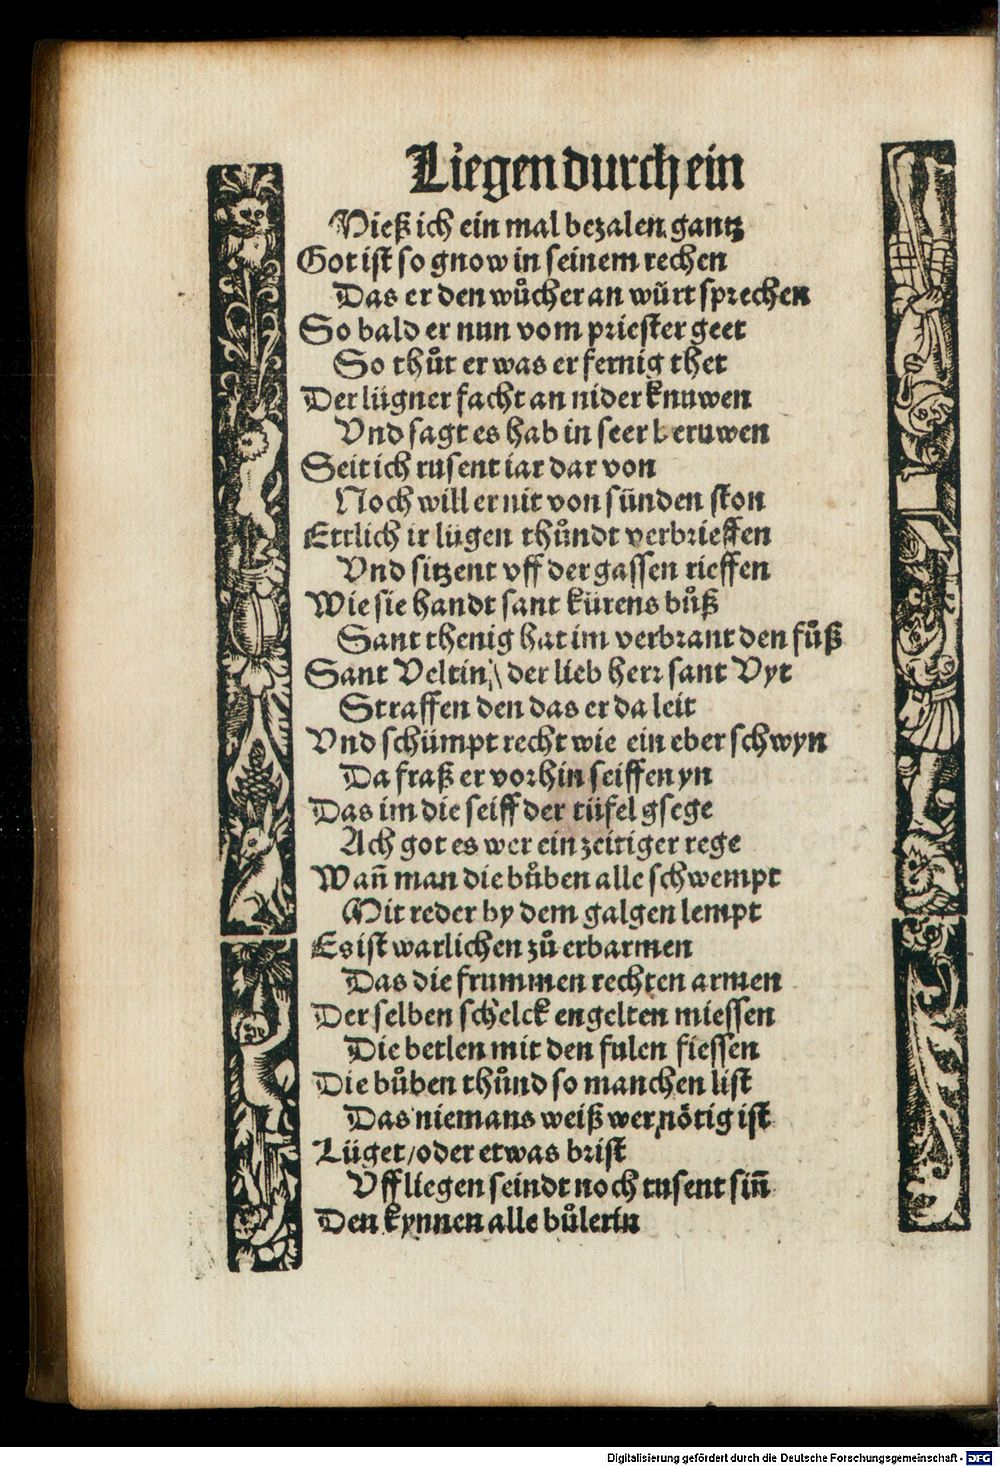 Liegen durch ein
Mieß ich ein mal bezalen gantz
Got ist so gnow in seinem rechen
Das er den wůcher an würt sprechen
So bald er nun vom priester geet
So thůt er was er fernig thet
Der lügner facht an nider knuwen
Vnd sagt es hab in seer beruwen
Seit ich tusent iar dar von
Noch will er nit von sünden ston
Ettlich ir lügen thůndt verbrieffen
Vnd sitzent vff der gassen rieffen
Wie sie handt sant kürens bůß
Sant thenig hat im verbrant den fůß
Sant Veltin / der lieb herr sant Vyt
Straffen den das er da leit
Vnd schümpt recht wie ein eber schwyn
Da fraß er vorhin seiffen yn
Das im die seiff der tüfel gsege
Ach got es wer ein zeitiger rege
Wañ man die bůben alle schwempt
Mit reder by dem galgen lempt
Es ist warlichen zů erbarmen
Das die frummen rechten armen
Der selben schelck engelten miessen
Die betlen mit den fulen fiessen
Die bůben thůnd so manchen list
Das niemans weiß wer nötig ist
Lüget / oder etwas brist
Vff liegen seindt noch tusent siñ
Den kynnen alle bůlerin
Digitalisierung gefördert durch die Deutsche Forschungsgemeinschaft - DFG